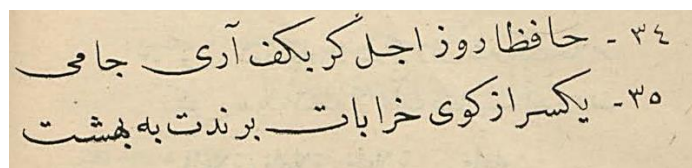 ٣٤ - حافظا روز اجل گر بکف آری جامی
٣٥ - یکسر از کوی خرابات برندت به بهشت